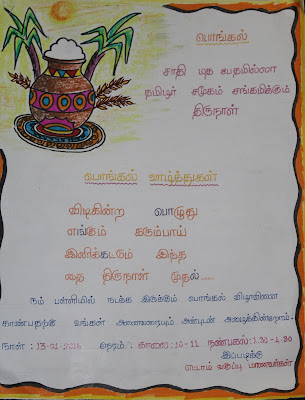 பொங்கல்
சாதி மத பேதமில்லா
தமிழர் சமூகம் சங்கமிக்கும்
திருநாள்
பொங்கல் வாழ்த்துகள்
விடிகின்ற பொழுது
எங்கும் கரும்பாய்
இனிக்கட்டும் இந்த
தை திருநாள் முதல்.....
நம் பள்ளியில் நடக்க இருக்கும் பொங்கல் விழாவினை
காண்பதற்கு உங்கள் அனைவரையும் அன்புடன் அழைக்கின்றோம்.
நாள் : 13-01-2014 நேரம் : காலை:10-11 நண்பகல்:1.30-4.30
இப்படிக்கு
எட்டாம் வகுப்பு மாணவர்கள்